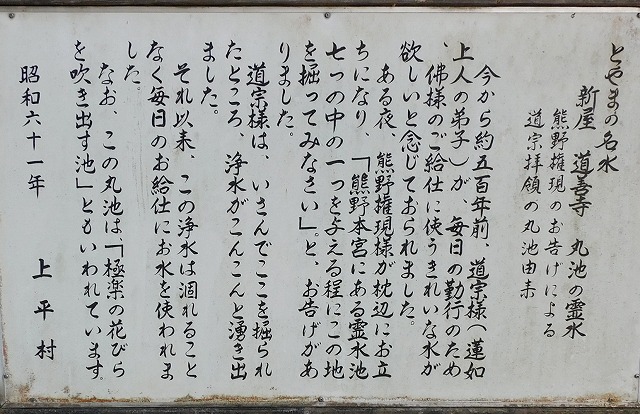 とやまの名水
新屋 道善寺 丸池の霊水
熊野権現のお告げによる
道宗拝領の丸池由来
今から約五百年前、道宗様(蓮如
上人の弟子)が、毎日の勤行のため
、佛様のご給仕に使うきれいな水が
欲しいと念じておられました。
ある夜、熊野権現様が枕辺にお立
ちになり、「熊野本宮にある霊水池
七つの中の一つを与える程にこの地
を掘ってみなさい」。と、お告げがあ
りました。
道宗様は、いさんでここを掘られ
たところ、浄水がこんこんと湧き出
ました。
それ以来、この浄水は涸れること
なく毎日のお給仕にお水を使われま
した。
なお、この丸池は「極楽の花びら
を吹き出す池」ともいわれています。
昭和六十一年 上平村